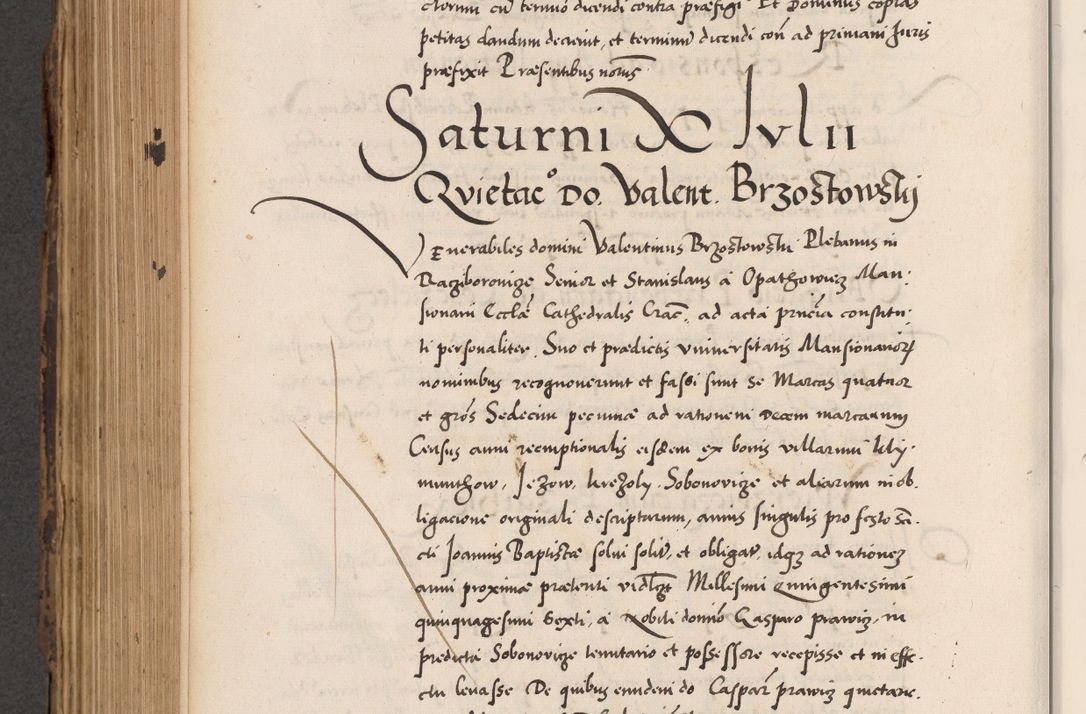 ctorum cū termino dicendi contra præfigi Et Dominus copias
petitas dandum decrevit, et terminū dicendi con̄ ad primam Juris
præfixit Præsentibus notis
Saturni X Ivlii
Qvietac⁰ Do. Valent. Brzostowskij
Venerabiles domini Valentinus Brzostowski Plebanus in
Racziborovicze Senior et Stanislaus a Opathowiecz Man-
sionarii Ecclæ Cathedralis Crac., ad acta pnćia constitu-
ti personaliter, Suo et prædictis vniversitatis Mansionarioꝝ
nominibus recognoverunt et fassi sunt se Marcas quatuor
et gros Sedecim pecuniæ ad rationem Decem marcarum
Census anni reemptionalis eisdem ex bonis villarum
Jezow, Sobonovicze et aliarum in ob-
ligacione originali descriptarum, annis singulis pro festo San-
cti Joannis Baptistæ solui solit, et obligat, idqꝫ ad rationem
anni proximæ præteriti vidlꝫt Millesimi Quingentesimi
quinquagesimi Sexti, a Nobili domino Casparo prawicz, in
predicta Sobonovicze tenutario et possessore recepisse et in effe-
ctu levasse De quibus eundem do Caspar prawicz quietarc.